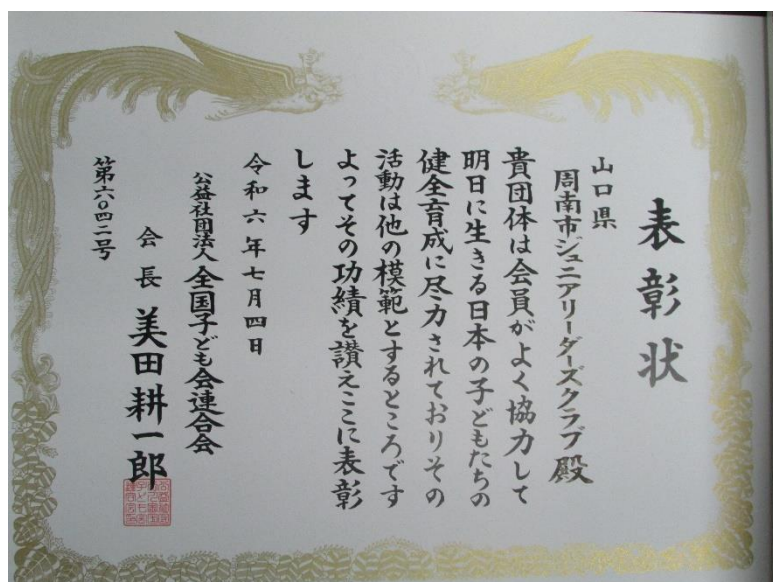 表彰状
山口県
周南市ジュニアリーダーズクラブ殿
貴団体は会員がよく協力して
明日に生きる日本の子どもたちの
健全育成に尽力されておりその
活動は他の模範とするところです
よってその功績を讃えここに表彰
します
令和六年七月四日
公益社団法人全国子ども会連合会
会長 美田耕一郎
第六〇四二号